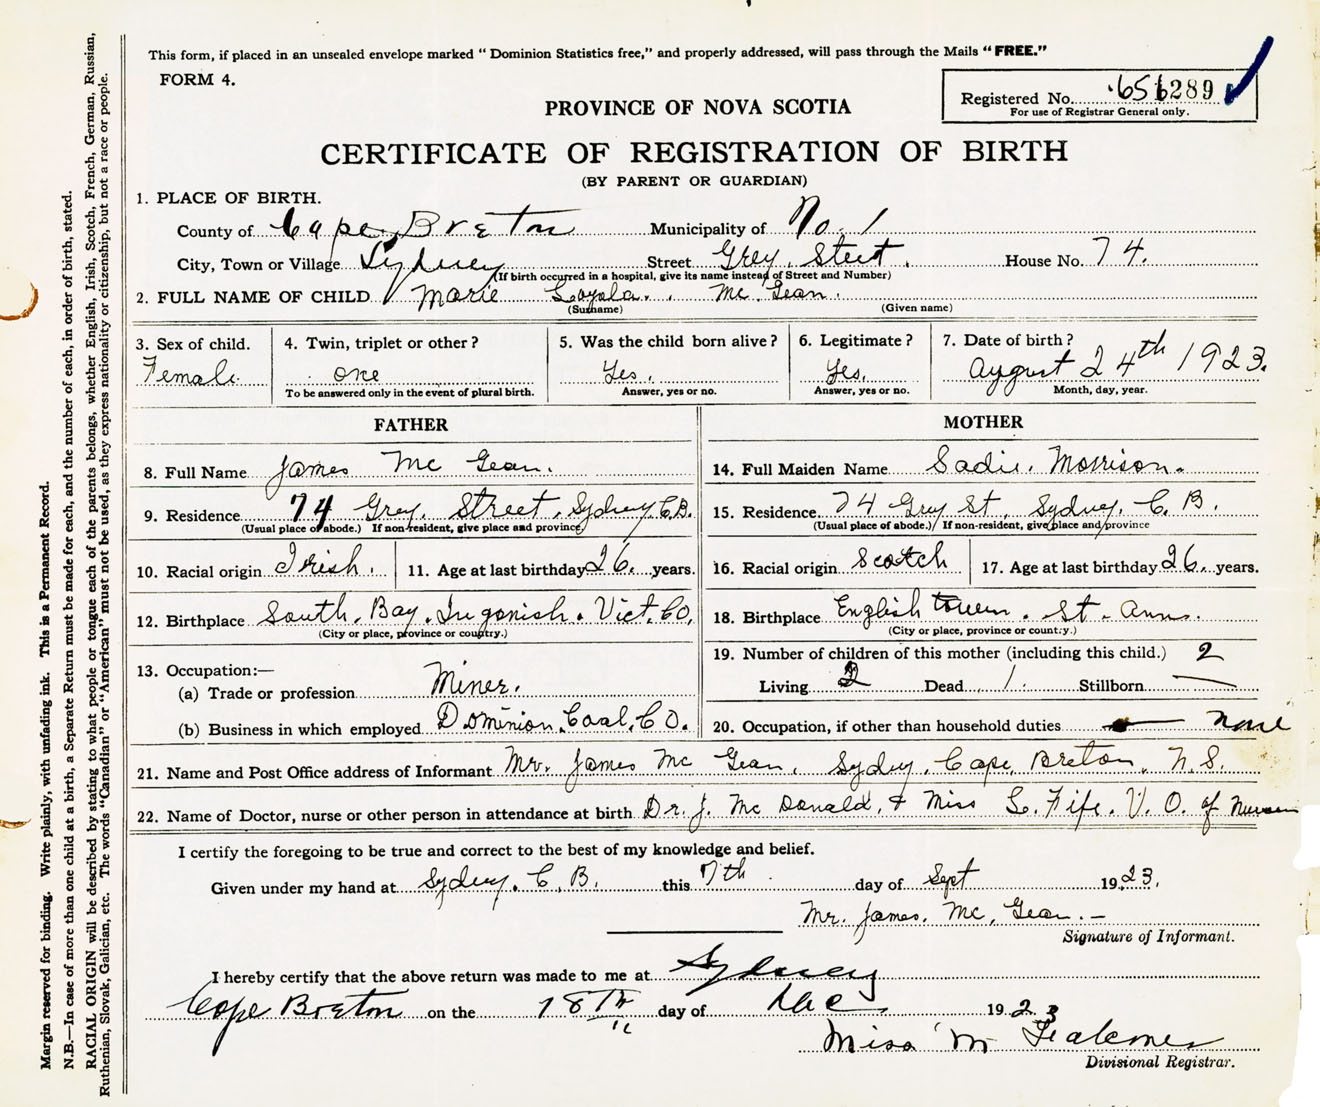 This form, if placed in an unsealed envelope marked "Dominion Statistics free," and properly addressed, will pass through the Mails "FREE."
FORM 4.
Registered No. 656289
For use of Registrar General only.
PROVINCE OF NOVA SCOTIA
CERTIFICATE OF REGISTRATION OF BIRTH
(BY PARENT OR GUARDIAN)
1. PLACE OF BIRTH.
County of Cape Breton Municipality of No. 1
City, Town or Village Sydney Street Grey Street. House No. 74.
(If birth occurred in a hospital, give its name instead of Street and Number)
2. FULL NAME OF CHILD Marie Loyola. Mc Gean.
(Surname) (Given name)
3. Sex of child. 4. Twin, triplet or other? 5. Was the child born alive? 6. Legitimate? 7. Date of birth?
Female. one Yes. Yes. August 24th 1923.
To be answered only in the event of plural birth. Answer, yes or no. Answer, yes or no. Month, day, year.
FATHER
8. Full Name James Mc Gean.
9. Residence 74 Grey. Street. Sydney C.B.
(Usual place of abode.) If non-resident, give place and province.
10. Racial origin Irish. 11. Age at last birthday 26. years.
12. Birthplace South. Bay. Ingonish. Vict. Co.
(City or place, province or country.)
13. Occupation:—
(a) Trade or profession Miner.
(b) Business in which employed Dominion. Coal. Co.
MOTHER
14. Full Maiden Name Sadie. Morrison.
15. Residence 74 Grey St. Sydney. C. B.
(Usual place of abode.) If non-resident, give place and province
16. Racial origin Scotch 17. Age at last birthday 26. years.
18. Birthplace English town. St. Anns.
(City or place, province or country.)
19. Number of children of this mother (including this child.) 2
Living 2 Dead 1. Stillborn —
20. Occupation, if other than household duties none
21. Name and Post Office address of Informant Mr. James Mc Gean. Sydney. Cape. Breton. N.S.
22. Name of Doctor, nurse or other person in attendance at birth Dr. J. Mc Donald, & Miss L. Fife. V. O. of
I certify the foregoing to be true and correct to the best of my knowledge and belief.
Given under my hand at Sydney. C. B. this 7th day of Sept 1923.
Mr. James. Mc, Gean. —
Signature of Informant.
I hereby certify that the above return was made to me at Sydney
Cape Breton on the 18th day of Dec 1923
Miss M
Divisional Registrar.
Margin reserved for binding. Write plainly, with unfading ink. This is a Permanent Record.
N.B.—In case of more than one child at a birth, a Separate Return must be made for each, and the number of each, in order of birth, stated.
RACIAL ORIGIN will be described by stating to what people or tongue each of the parents belongs, whether English, Irish, Scotch, French, German, Russian,
Ruthenian, Slovak, Galician, etc. The words "Canadian" or "American" must not be used, as they express nationality or citizenship, but not a race or people.